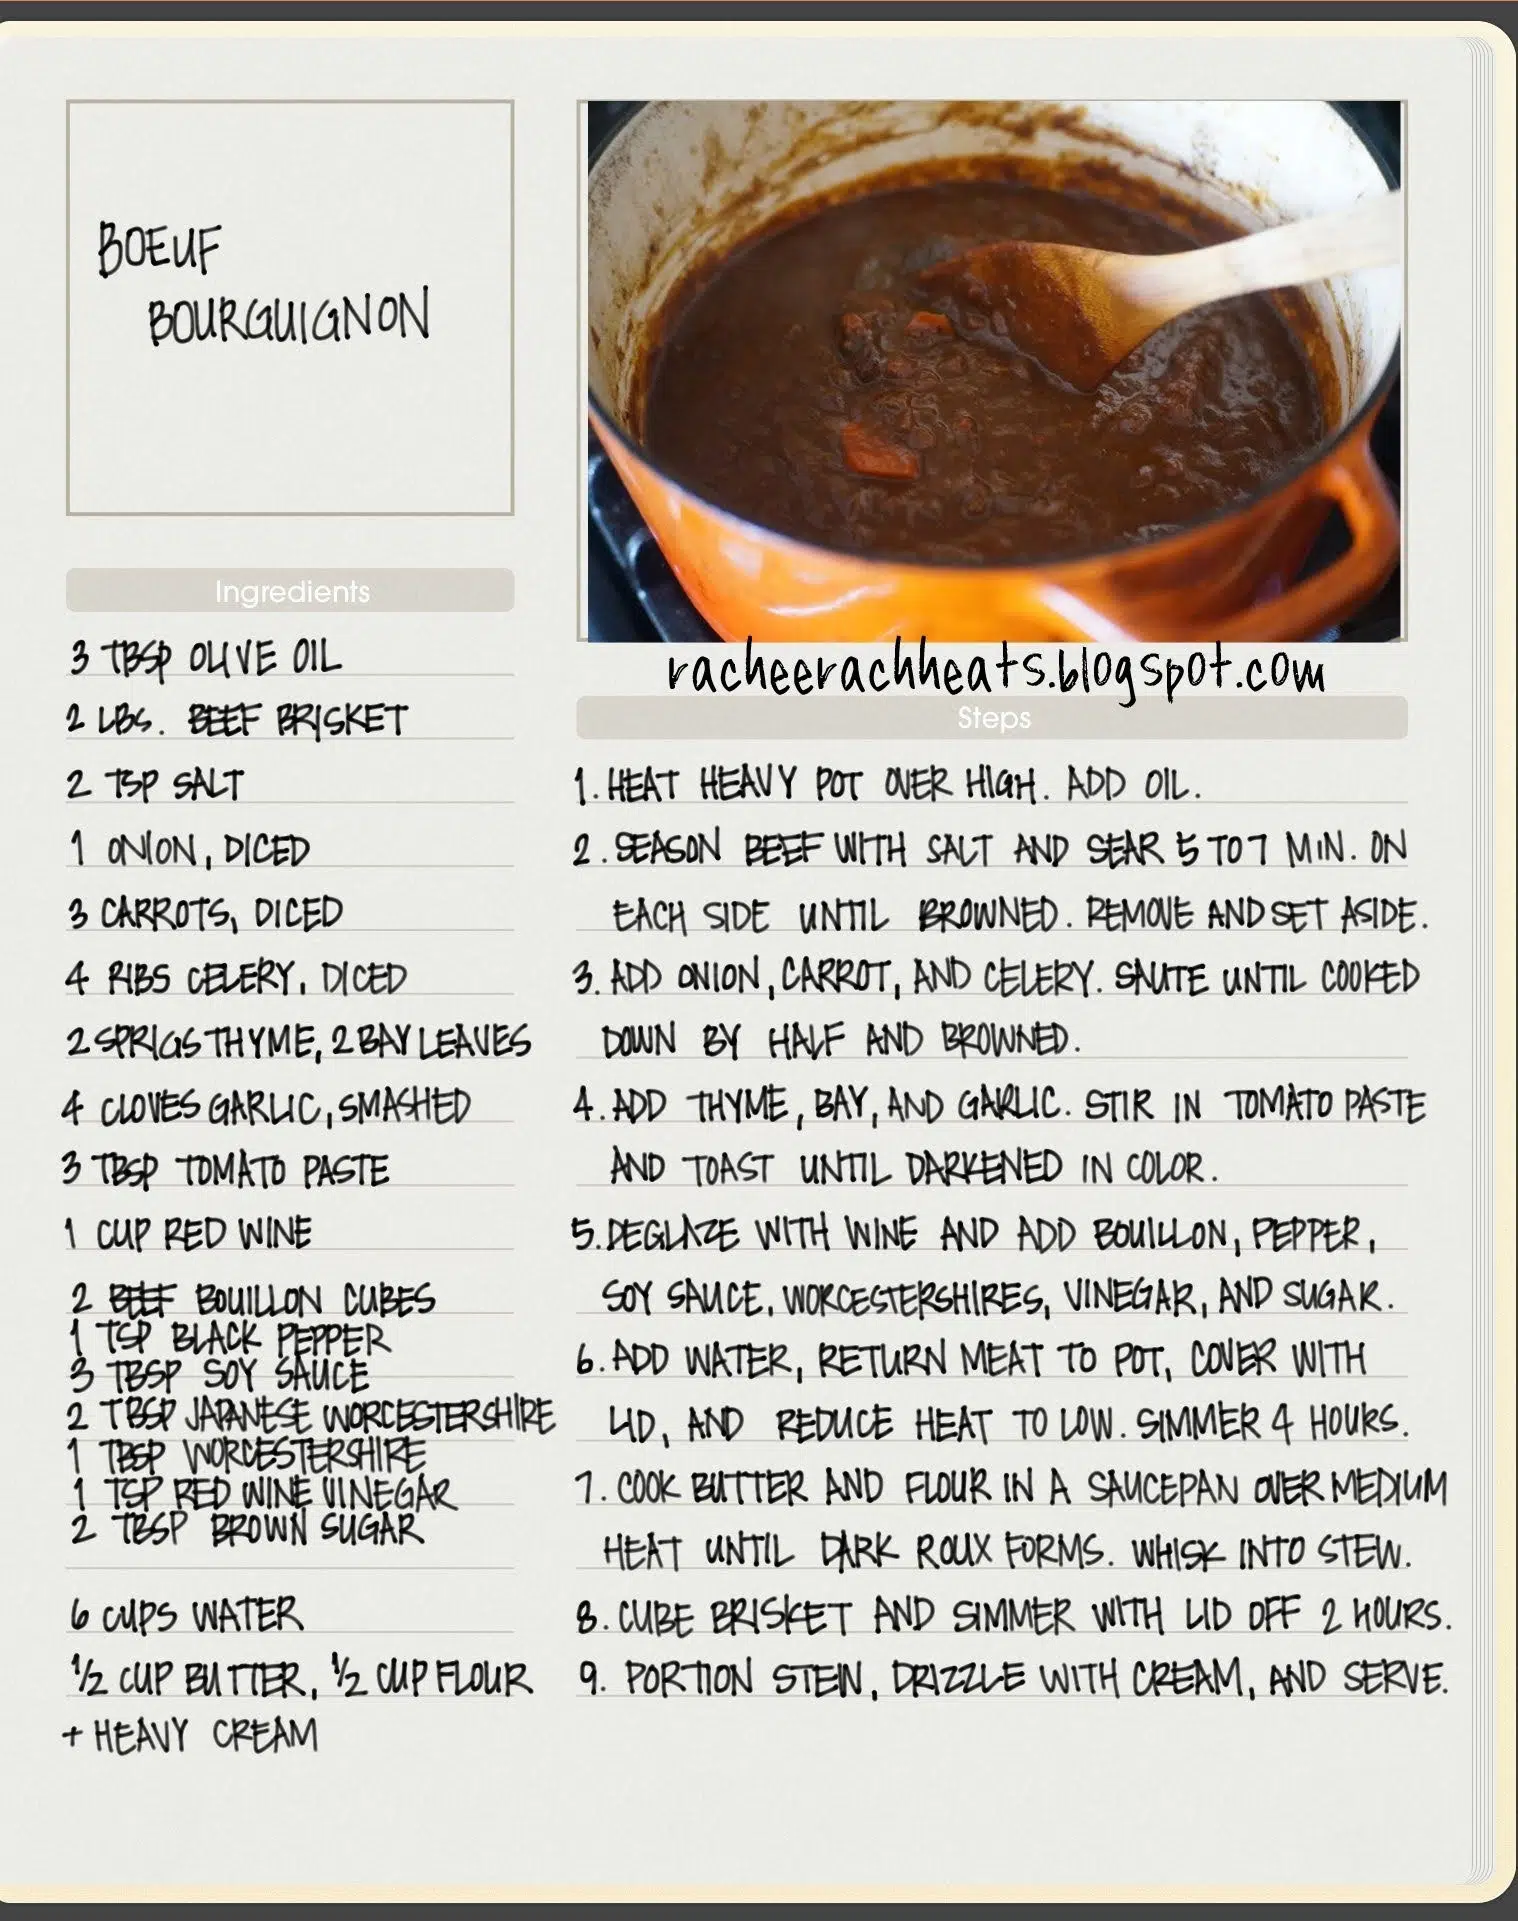 BOEUF
BOURGUIGNON
Ingredients
3 TBSP OLIVE OIL
2 LBS. BEEF BRISKET
2 TSP SALT
1 ONION, DICED
3 CARROTS, DICED
4 RIBS CELERY, DICED
2 SPRIGS THYME, 2 BAY LEAVES
4 CLOVES GARLIC, SMASHED
3 TBSP TOMATO PASTE
1 CUP RED WINE
2 BEEF BOUILLON CUBES
1 TSP BLACK PEPPER
3 TBSP SOY SAUCE
2 TBSP JAPANESE WORCESTERSHIRE
1 TBSP WORCESTERSHIRE
1 TSP RED WINE VINEGAR
2 TBSP BROWN SUGAR
6 CUPS WATER
1/2 CUP BUTTER, 1/2 CUP FLOUR
+ HEAVY CREAM
racheerachheats.blogspot.com
Steps
1. HEAT HEAVY POT OVER HIGH. ADD OIL.
2. SEASON BEEF WITH SALT AND SEAR 5 TO 7 MIN. ON
EACH SIDE UNTIL BROWNED. REMOVE AND SET ASIDE.
3. ADD ONION, CARROT, AND CELERY. SAUTE UNTIL COOKED
DOWN BY HALF AND BROWNED.
4. ADD THYME, BAY, AND GARLIC. STIR IN TOMATO PASTE
AND TOAST UNTIL DARKENED IN COLOR.
5. DEGLAZE WITH WINE AND ADD BOUILLON, PEPPER,
SOY SAUCE, WORCESTERSHIRES, VINEGAR, AND SUGAR.
6. ADD WATER, RETURN MEAT TO POT, COVER WITH
LID, AND REDUCE HEAT TO LOW. SIMMER 4 HOURS.
7. COOK BUTTER AND FLOUR IN A SAUCEPAN OVER MEDIUM
HEAT UNTIL DARK ROUX FORMS. WHISK INTO STEW.
8. CUBE BRISKET AND SIMMER WITH LID OFF 2 HOURS.
9. PORTION STEW, DRIZZLE WITH CREAM, AND SERVE.